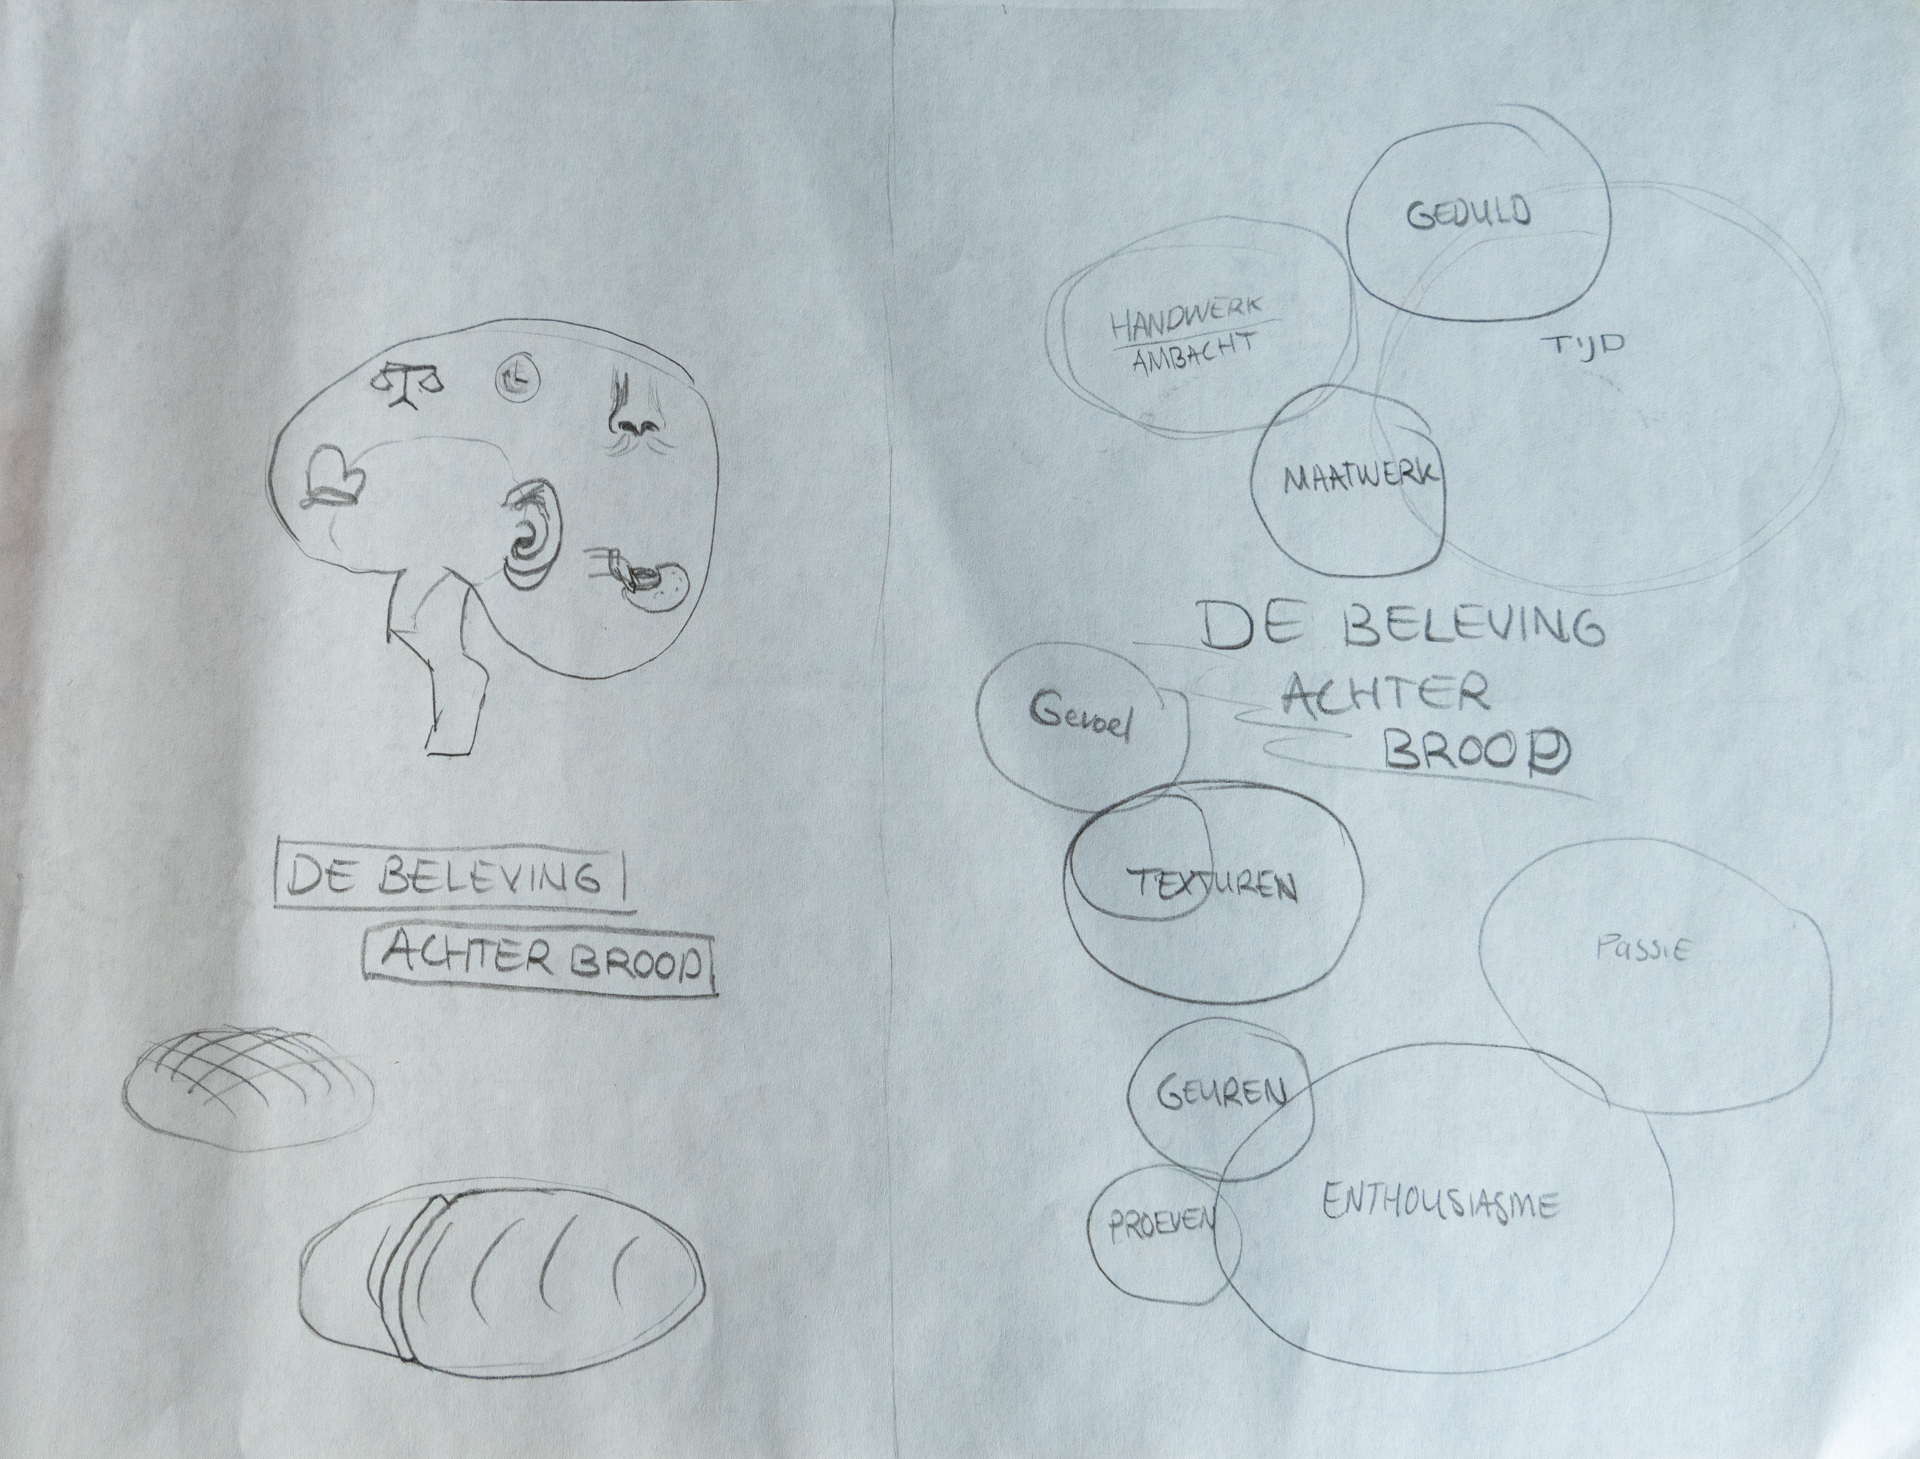 DE BELEVING
ACHTER BROOD
GEDULD
HANDWERK
AMBACHT
TIJD
MAATWERK
DE BELEVING
ACHTER
BROOD
Gevoel
TEXTUREN
PASSIE
GEUREN
ENTHOUSIASME
PROEVEN